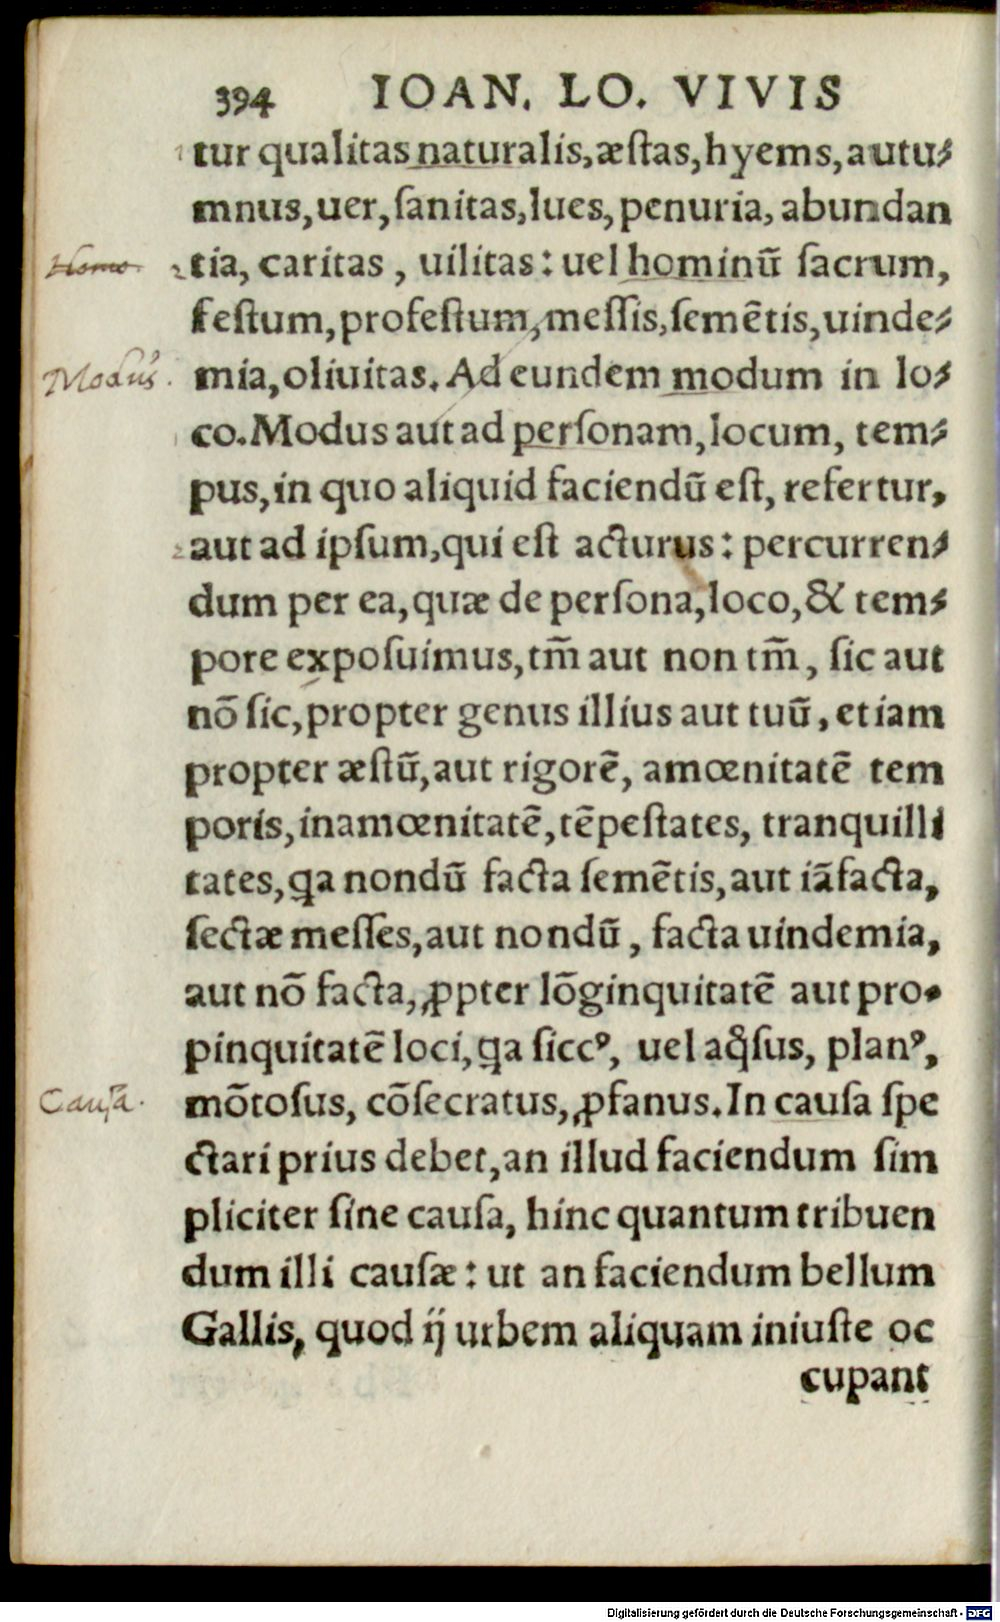 394 IOAN. LO. VIVIS
tur qualitas naturalis, æſtas, hyems, autu⸗
mnus, uer, ſanitas, lues, penuria, abundan
Homo
tia, caritas, uilitas: uel hominũ ſacrum,
feſtum, profeſtum, meſſis, ſemẽtis, uinde⸗
Modus.
mia, oliuitas. Ad eundem modum in lo⸗
co. Modus aut ad perſonam, locum, tem⸗
pus, in quo aliquid faciendũ eſt, refertur,
aut ad ipſum, qui eſt acturus: percurren⸗
dum per ea, quæ de perſona, loco, & tem⸗
pore expoſuimus, tm̃ aut non tm̃, ſic aut
nõ ſic, propter genus illius aut tuũ, etiam
propter æſtũ, aut rigorẽ, amœnitatẽ tem
poris, inamœnitatẽ, tẽpeſtates, tranquilli
tates, ꝗa nondũ facta ſemẽtis, aut iã facta,
ſectæ meſſes, aut nondũ, facta uindemia,
aut nõ facta, ꝓpter lõginquitatẽ aut pro⸗
pinquitatẽ loci, ꝗa ſiccꝰ, uel aq̊ſus, planꝰ,
Cauſa.
mõtoſus, cõſecratus, ꝓfanus. In cauſa ſpe
ctari prius debet, an illud faciendum ſim
pliciter ſine cauſa, hinc quantum tribuen
dum illi cauſæ: ut an faciendum bellum
Gallis, quod ij urbem aliquam iniuſte oc
cupant
Digitalisierung gefördert durch die Deutsche Forschungsgemeinschaft - DFG